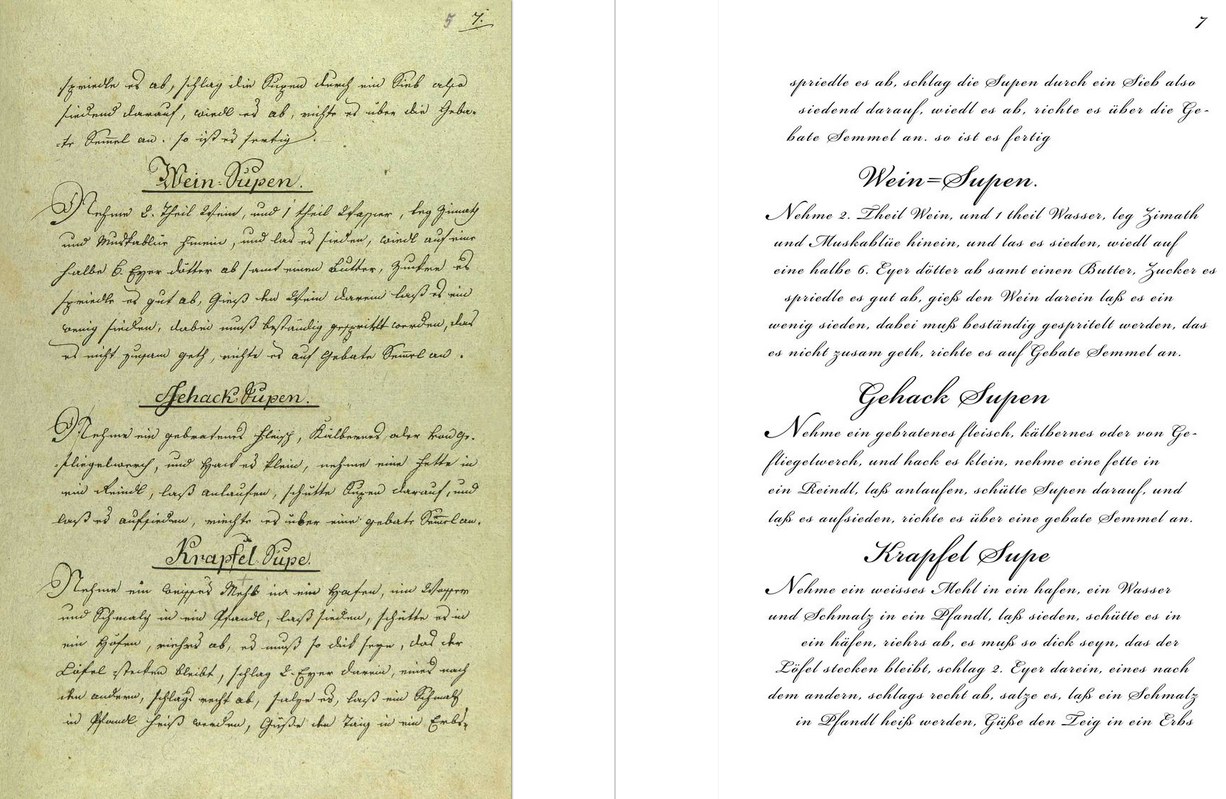 5 7.
spriedle es ab, schlag die Supen durch ein Sieb also
siedend darauf, wiedl es ab, richte es über die Geba-
te Semmel an. so ist es fertig.
Wein-Supen.
Nehme 2. Theil Wein, und 1 theil Wasser, leg Zimath
und Muskablüe hinein, und las es sieden, wiedl auf eine
halbe 6. Eyer dötter ab samt einen Butter, Zucker es
spriedle es gut ab, Gieß den Wein darein laß es ein
wenig sieden, dabei muß beständig gespritelt werden, das
es nicht zusam geth, richte es auf Gebate Semmel an.
Gehack Supen.
Nehme ein gebratenes fleisch, Kälbernes oder von Ge-
fliegelwerch, und Hack es klein, nehme eine fette in
ein Reindl, laß anlaufen, schütte Supen darauf, und
laß es aufsieden, riechte es über eine gebate Semmel an.
Krapfel Supe
Nehme ein weisses Mehl in ein Hafen, ein Wasser
und Schmalz in ein Pfandl, laß sieden, schütte es in
ein Häfen, riehrs ab, es muß so dick seyn, das der
Löfel stecken bleibt, schlag 2. Eyer darein, eines nach
dem andern, schlags recht ab, salze es, laß ein Schmalz
in Pfandl heiß werden, Güße den Taig in ein Erbs
7
spriedle es ab, schlag die Supen durch ein Sieb also
siedend darauf, wiedl es ab, richte es über die Ge-
bate Semmel an. so ist es fertig
Wein=Supen.
Nehme 2. Theil Wein, und 1 theil Wasser, leg Zimath
und Muskablüe hinein, und las es sieden, wiedl auf
eine halbe 6. Eyer dötter ab samt einen Butter, Zucker es
spriedle es gut ab, gieß den Wein darein laß es ein
wenig sieden, dabei muß beständig gespritelt werden, das
es nicht zusam geth, richte es auf Gebate Semmel an.
Gehack Supen
Nehme ein gebratenes fleisch, kälbernes oder von Ge-
fliegelwerch, und hack es klein, nehme eine fette in
ein Reindl, laß anlaufen, schütte Supen darauf, und
laß es aufsieden, richte es über eine gebate Semmel an.
Krapfel Supe
Nehme ein weisses Mehl in ein hafen, ein Wasser
und Schmalz in ein Pfandl, laß sieden, schütte es in
ein häfen, riehrs ab, es muß so dick seyn, das der
Löfel stecken bleibt, schlag 2. Eyer darein, eines nach
dem andern, schlags recht ab, salze es, laß ein Schmalz
in Pfandl heiß werden, Güße den Teig in ein Erbs